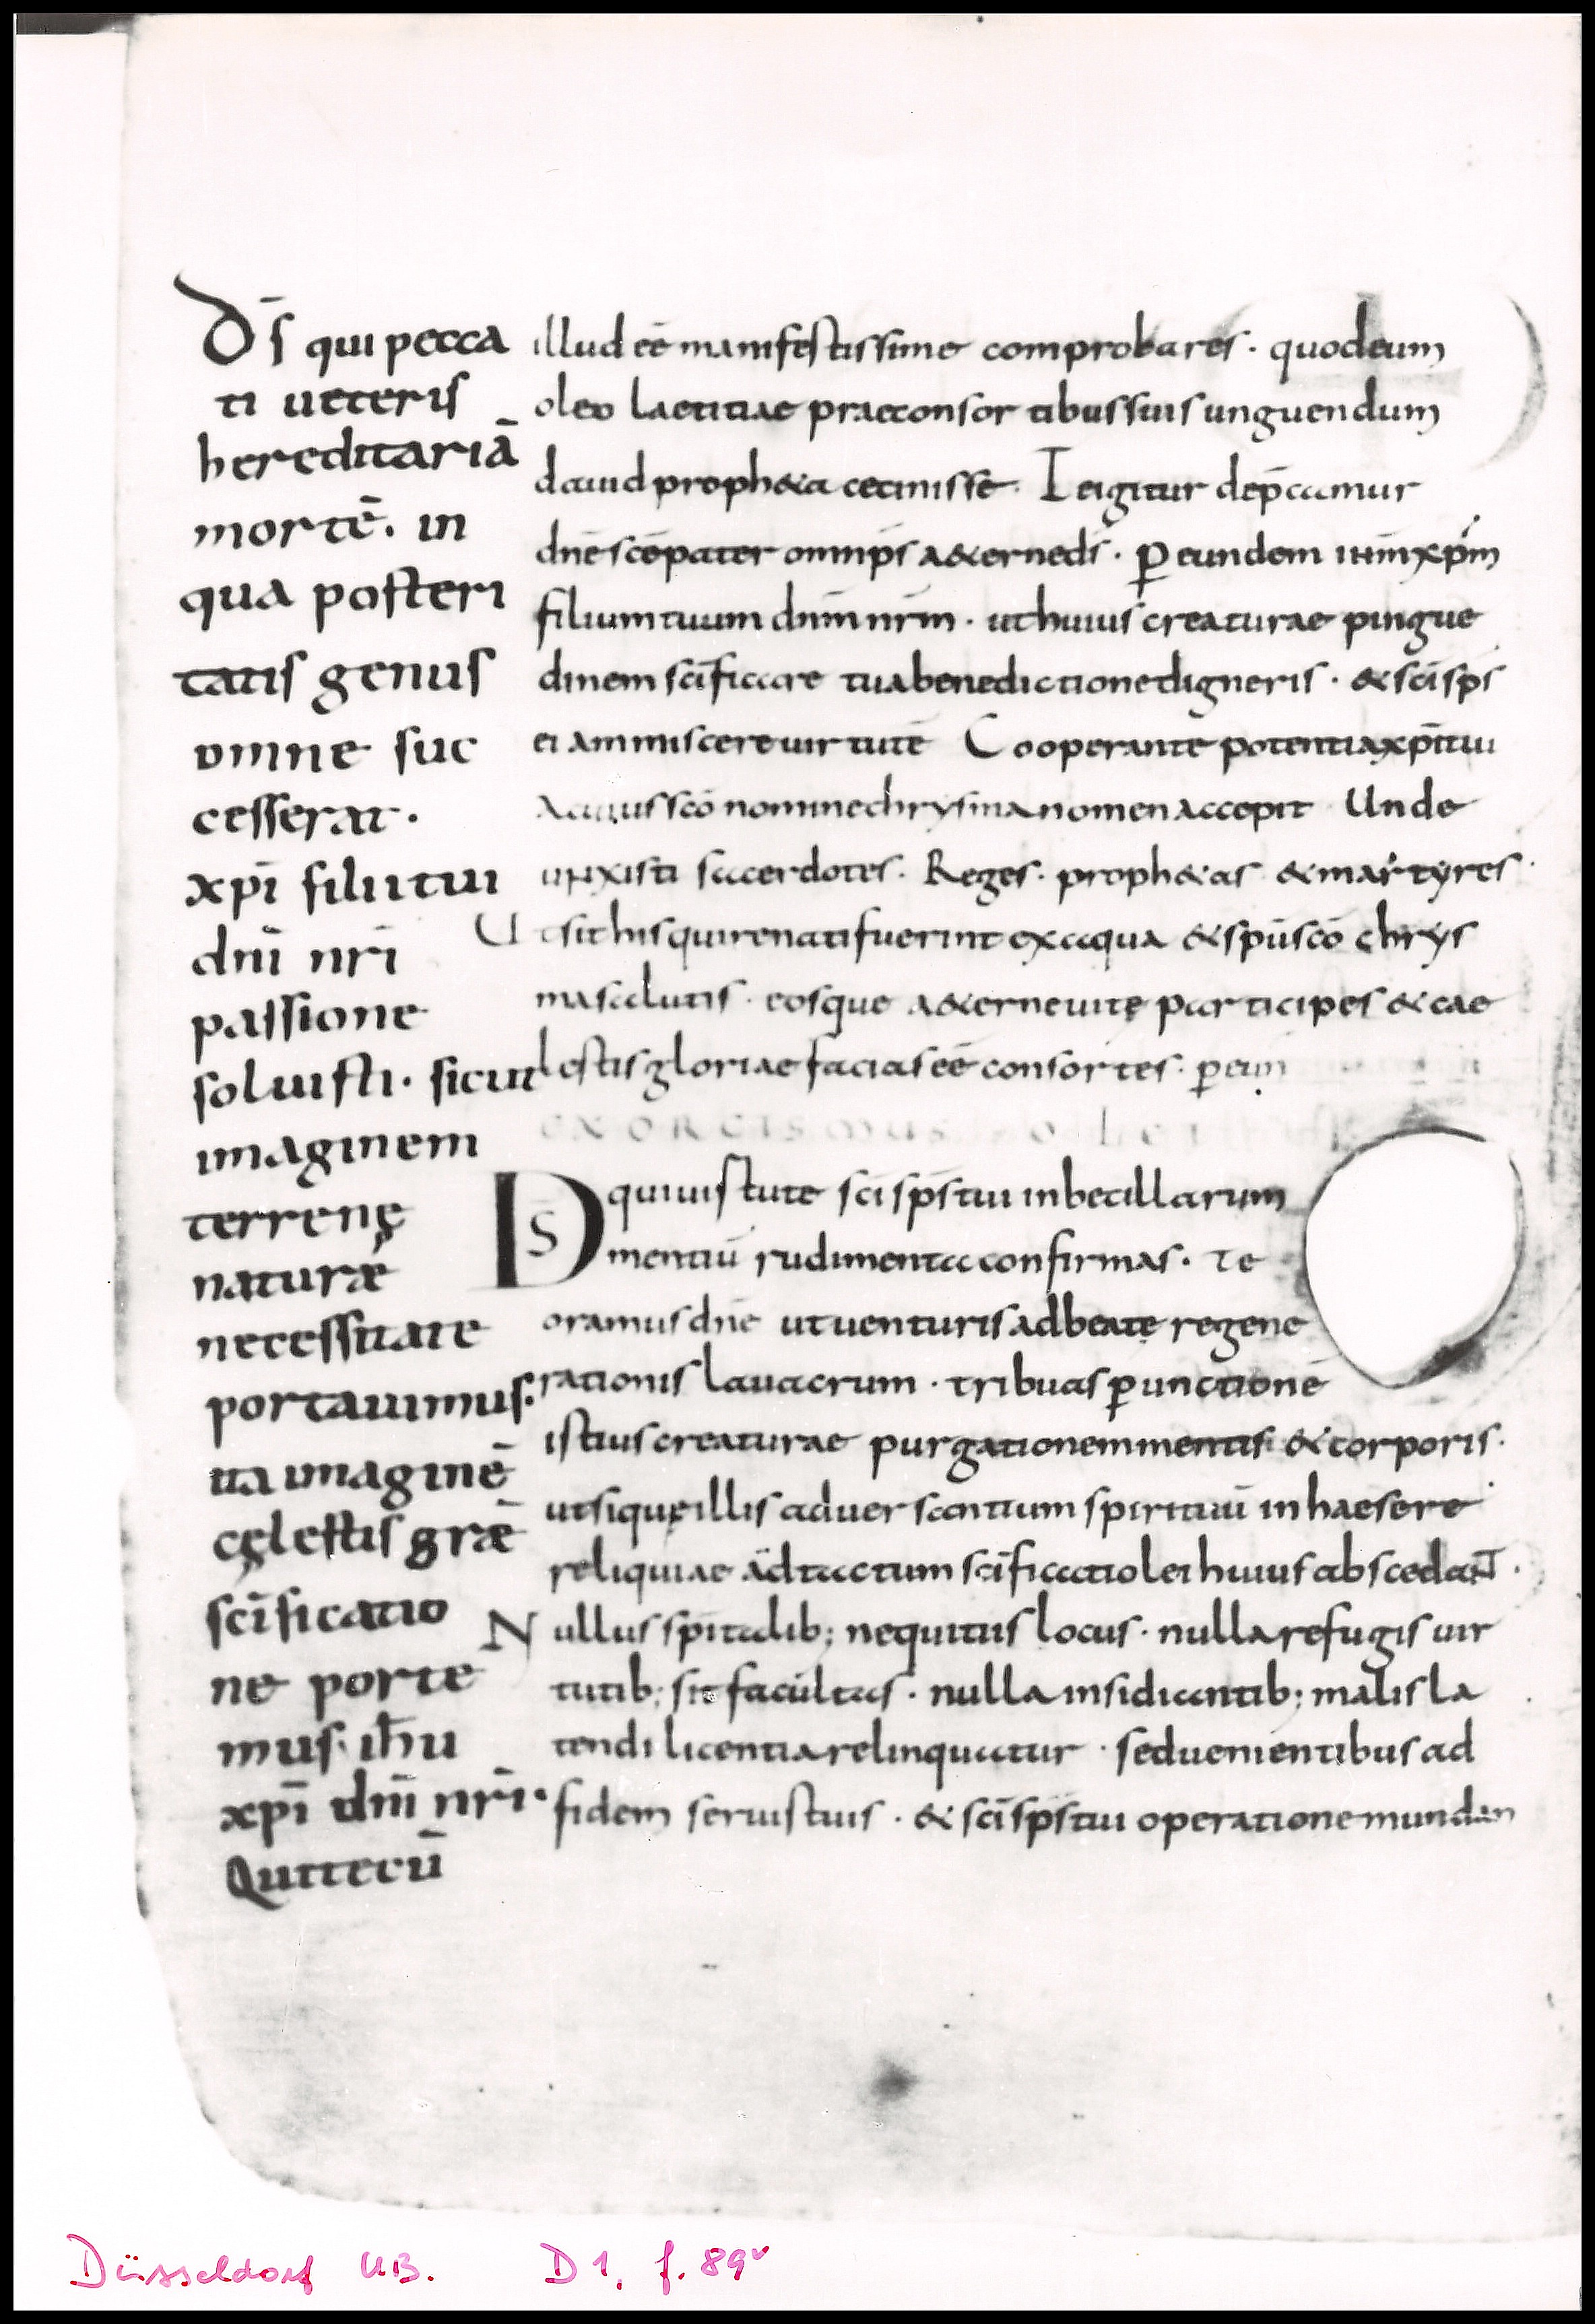 Ds̄ qui pecca
ti ueteris
hereditariā
mortē. in
qua posteri
tatis genus
omne suc
cesserat.
xpī filii tui
dnī nrī
passione
soluisti. sicut
imaginem
terrenę
naturæ
necessitate
portauimus.
ita imaginē
cęlestis græ
scīficatio
ne porte
mus. ihū
xpī dnī nrī.
Qui tecū
illud eē manifestissime comprobares. quod eum
oleo laetitiae prae consortibus suis unguendum
dauid proph&a cecinisse. Te igitur dep̄camur
dnē scē pater omnip̄s a&erne ds̄. ꝑ eundem ihm̄ xpm̄
filium tuum dnm̄ nrm̄. ut huius creaturae pingue
dinem scīficare tua benedictione digneris. & scī sps̄
ei ammiscere uirtutē Cooperante potentia xpī tui
A cuius scō nomine chrysma nomen accepit Unde
unxisti sacerdotes. Reges. proph&as & martyres.
Ut sit his qui renati fuerint ex aqua & spū scō chrys
ma salutis. eosque a&erne uitę participes & cae
lestis gloriae facias eē consortes. ꝑ eum
exorcismus olei
DS qui uirtute scī sps̄ tui inbecillarum
mentiū rudimenta confirmas. Te
oramus dnē ut uenturis ad beatę regene
rationis lauacrum. tribuas ꝑ unctionē
istius creaturae purgationem mentis & corporis.
ut si quę illis aduersantium spirituū inhaesere
reliquiae ad tactum scīficati olei huius abscedant.
Nullus spītalib; nequitiis locus. nulla refugis uir
tutib; sit facultas. nulla insidiantib; malis la
tendi licentia relinquatur. sed uenientibus ad
fidem seruis tuis. & scī sps̄ tui operatione mundan
Düsseldorf UB. D 1, f. 89v